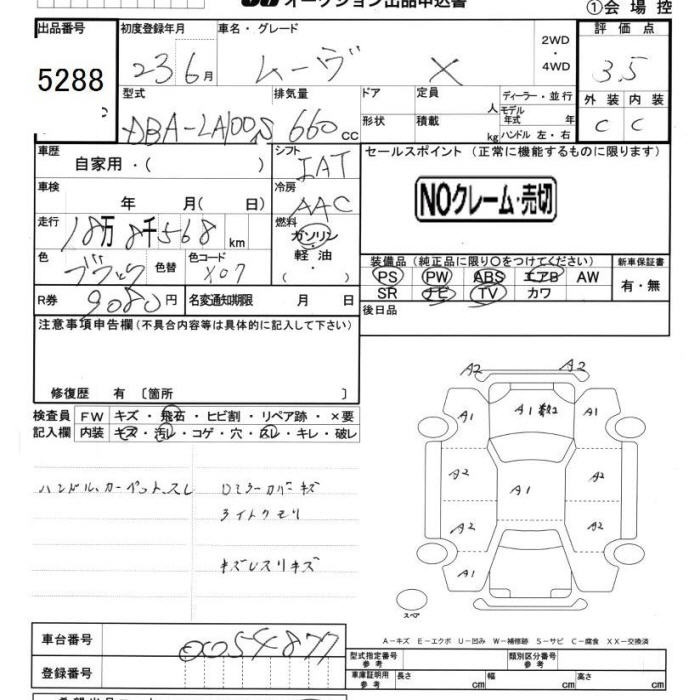 オークション出品申込書
①会場控
出品番号 初度登録年月 車名・グレード 2WD・4WD 評価点
5288 23 6月 ムーヴ X 3.5
型式 排気量 ドア 定員 人 ディーラー・並行 外装 内装
DBA-LA100S 660cc 形状 積載 kg モデル年式 年 C C
ハンドル 左・右
車歴 自家用・( ) シフト IAT セールスポイント (正常に機能するものに限ります)
車検 年 月( 日) 冷房 AAC NOクレーム・売切
走行 18万8千568km 燃料 ガソリン・軽油・( )
色 ブラック 色替 色コード X07
装備品(純正品に限り○をつけてください) 新車保証書
PS PW ABS エアB AW 有・無
SR ナビ TV カワ
R券 9080円 名変通知期限 月 日 後日品
注意事項申告欄(不具合内容等は具体的に記入して下さい)
修復歴 有〔箇所 〕
検査員記入欄 FW キズ・飛石・ヒビ割・リペア跡・×要
内装 キズ・汚レ・コゲ・穴・スレ・キレ・破レ
ハンドル、カーペット、スレ
ドミラーカバーキズ
ライトクモリ
キズレスリキズ
A2 A2
A1 A1数2 A1
A2 A1 A2
A2 A2
A1
スペア
A-キズ E-エクボ U-凹み W-補修跡 S-サビ C-腐食 XX-交換済
車台番号 0054877
登録番号
型式指定番号 参考 類別区分番号 参考
車庫証明用 参考 長さ cm 幅 cm 高さ cm